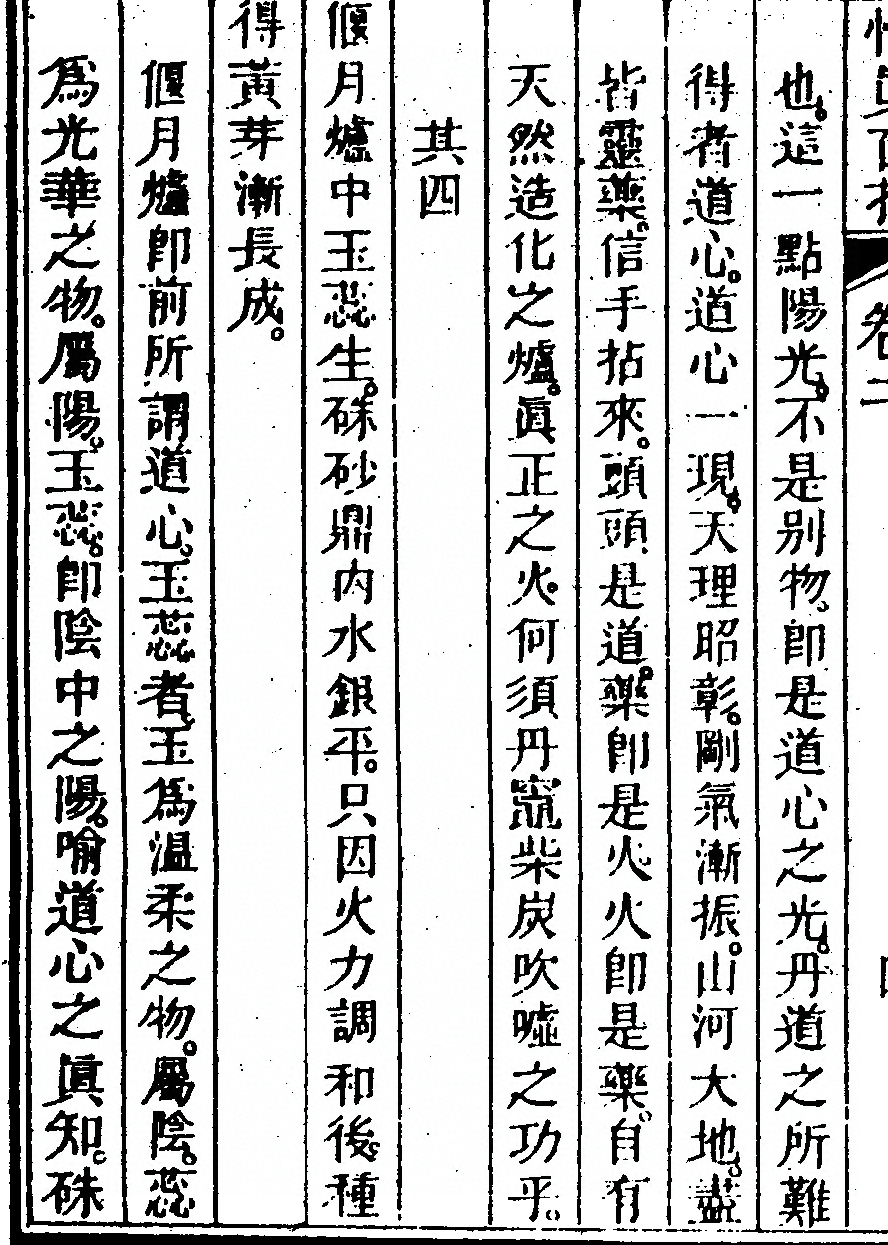 悟真直指 卷二 四
也。這一點陽光。不是別物。卽是道心之光。丹道之所難
得者道心。道心一現。天理昭彰。剛氣漸振。山河大地。盡
皆靈藥。信手拈來。頭頭是道。藥卽是火。火卽是藥。自有
天然造化之爐。眞正之火。何須丹竈柴炭吹噓之功乎。
其四
偃月爐中玉蕊生。硃砂鼎內水銀平。只因火力調和後。種
得黃芽漸長成。
偃月爐卽前所謂道心。玉蕊者。玉爲溫柔之物。屬陰。蕊
爲光華之物。屬陽。玉蕊。卽陰中之陽。喻道心之眞知。硃